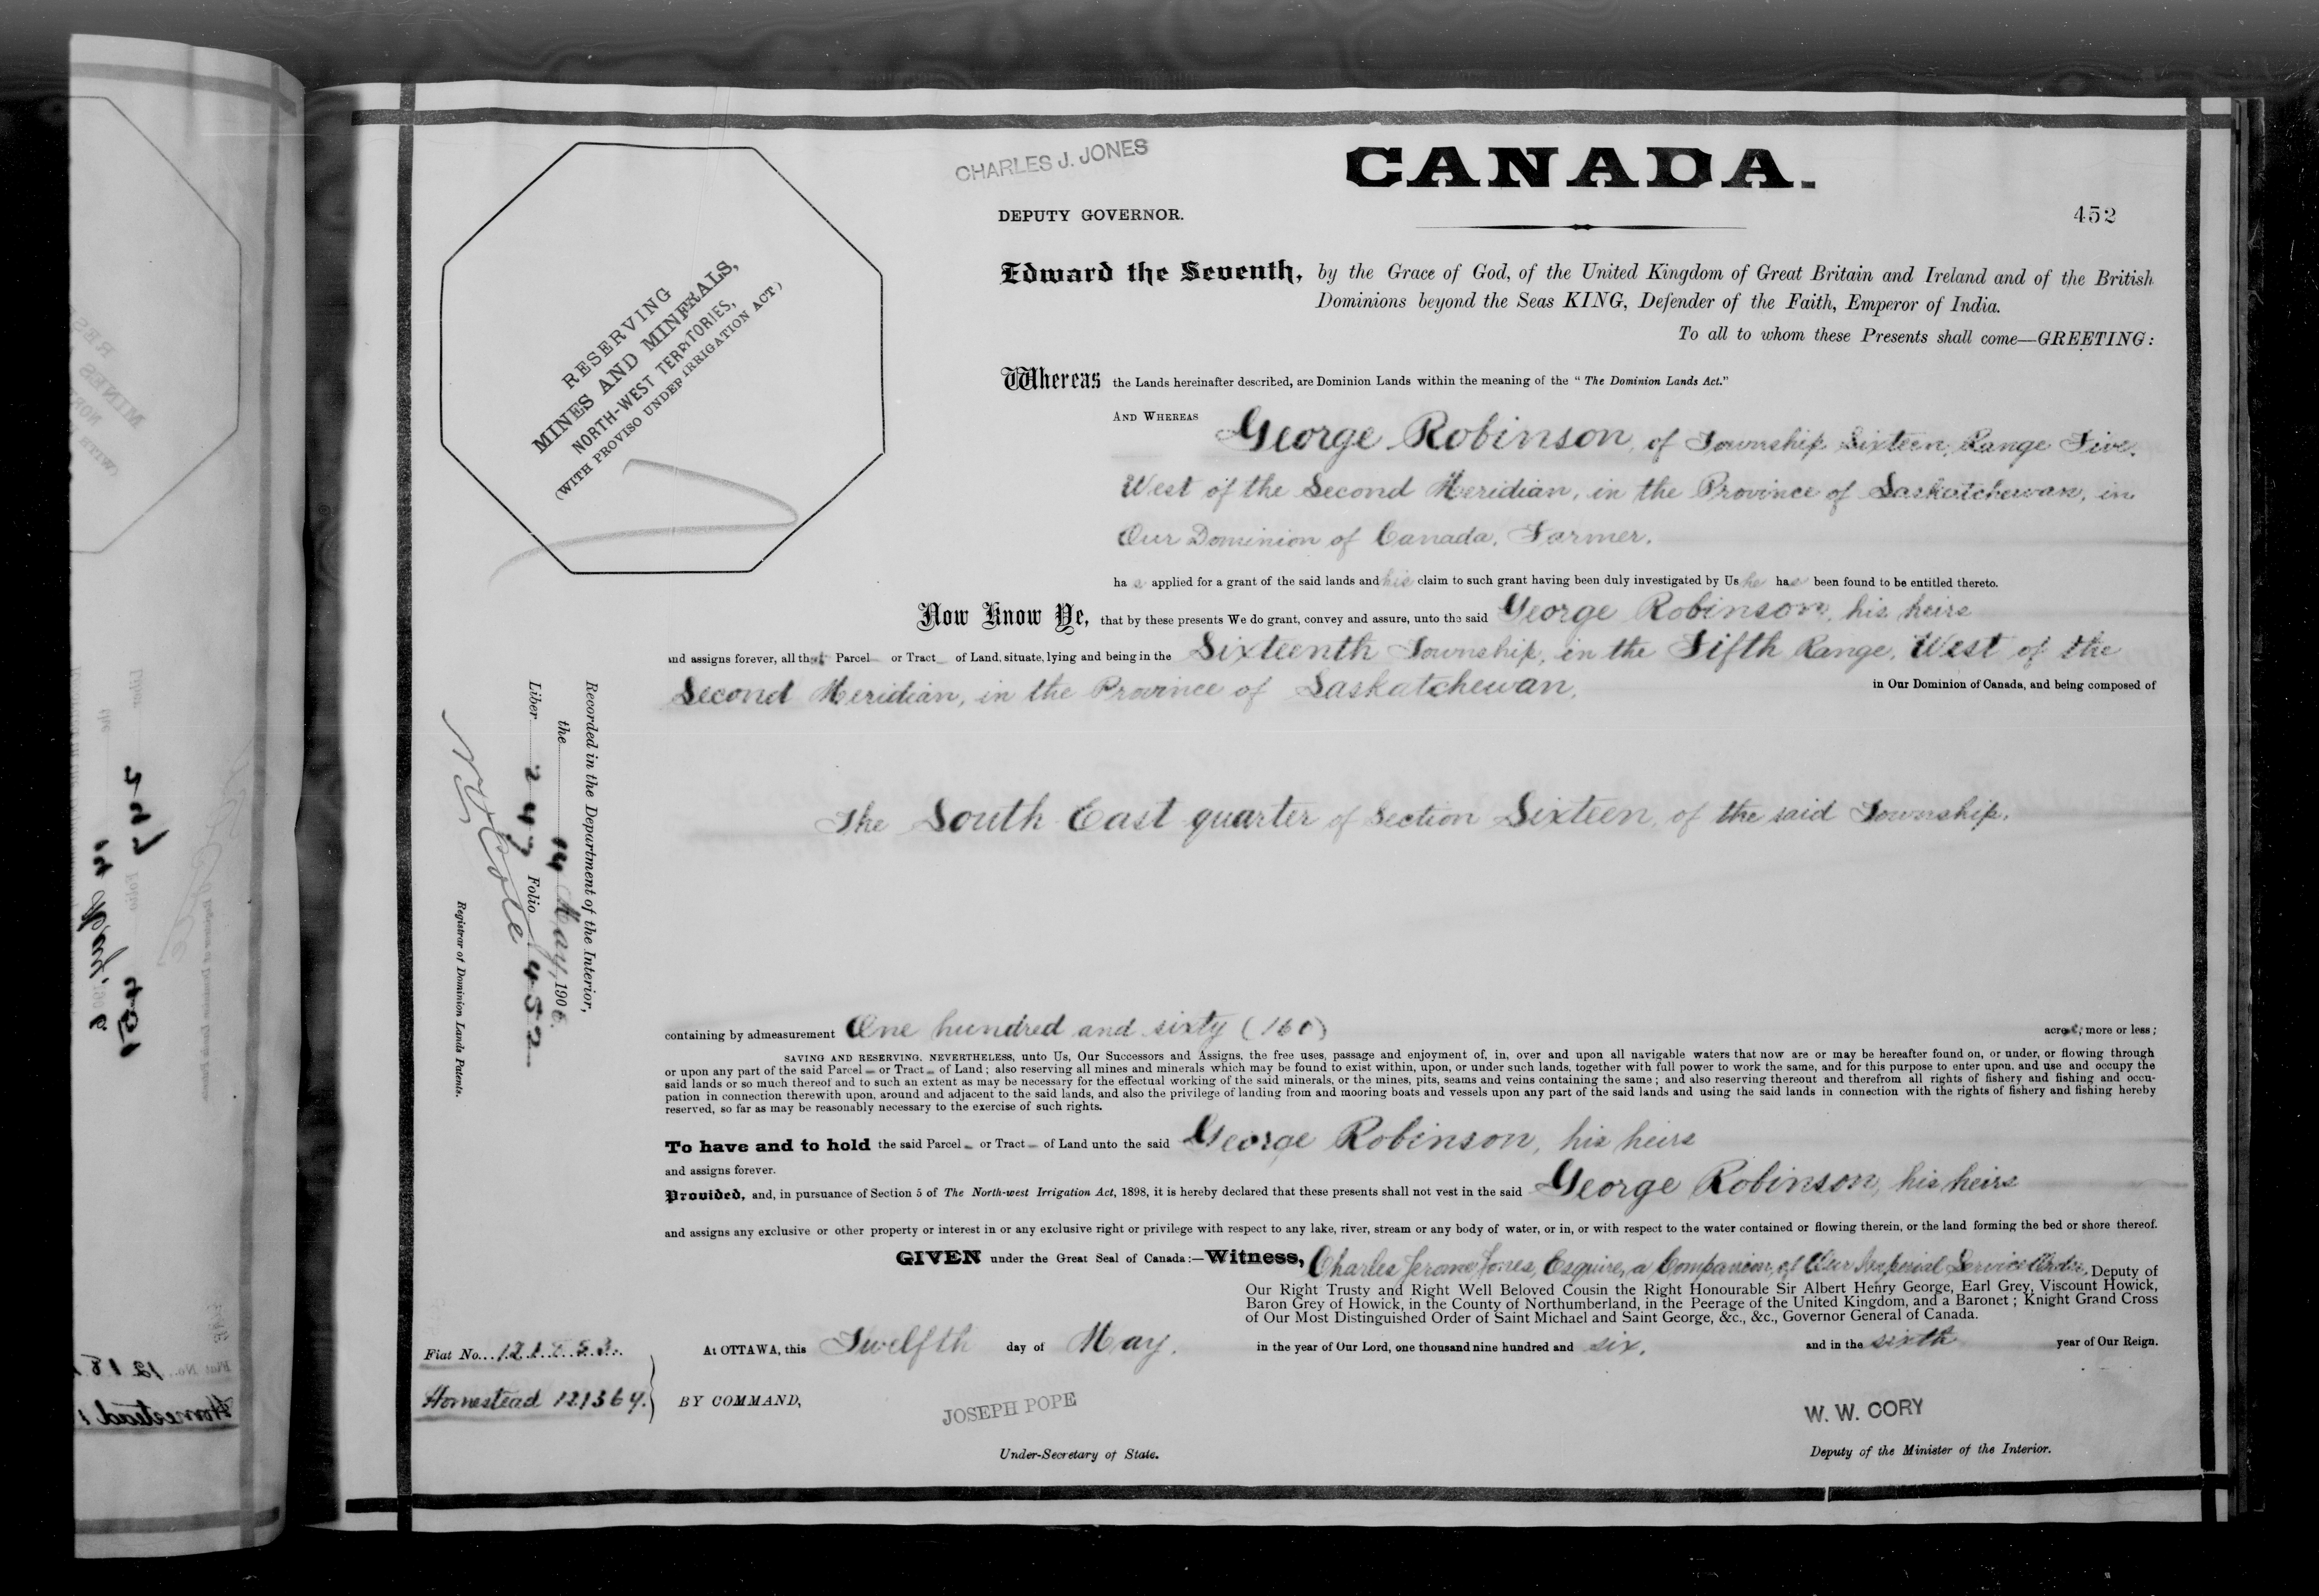 CHARLES J. JONES
CANADA.
DEPUTY GOVERNOR.
452
RESERVING
MINES AND MINERALS,
NORTH-WEST TERRITORIES,
(WITH PROVISO UNDER IRRIGATION ACT)
Edward the Seventh, by the Grace of God, of the United Kingdom of Great Britain and Ireland and of the British
Dominions beyond the Seas KING, Defender of the Faith, Emperor of India.
To all to whom these Presents shall come—GREETING:
Whereas the Lands hereinafter described, are Dominion Lands within the meaning of the "The Dominion Lands Act."
AND WHEREAS George Robinson, of Township Sixteen, Range Five,
West of the Second Meridian, in the Province of Saskatchewan, in
Our Dominion of Canada, Farmer,
has applied for a grant of the said lands and his claim to such grant having been duly investigated by Us he has been found to be entitled thereto.
Now Know Ye, that by these presents We do grant, convey and assure, unto the said George Robinson, his heirs
and assigns forever, all that Parcel or Tract of Land, situate, lying and being in the Sixteenth Township, in the Fifth Range, West of the
Second Meridian, in the Province of Saskatchewan, in Our Dominion of Canada, and being composed of
The South East quarter of Section Sixteen, of the said Township,
Recorded in the Department of the Interior,
the 14 May, 1906.
Liber 247 Folio 452
Registrar of Dominion Lands Patents.
containing by admeasurement One hundred and sixty (160) acres, more or less;
SAVING AND RESERVING, NEVERTHELESS, unto Us, Our Successors and Assigns, the free uses, passage and enjoyment of, in, over and upon all navigable waters that now are or may be hereafter found on, or under, or flowing through
or upon any part of the said Parcel or Tract of Land; also reserving all mines and minerals which may be found to exist within, upon, or under such lands, together with full power to work the same, and for this purpose to enter upon, and use and occupy the
said lands or so much thereof and to such an extent as may be necessary for the effectual working of the said minerals, or the mines, pits, seams and veins containing the same; and also reserving thereout and therefrom all rights of fishery and fishing and occu-
pation in connection therewith upon, around and adjacent to the said lands, and also the privilege of landing from and mooring boats and vessels upon any part of the said lands and using the said lands in connection with the rights of fishery and fishing hereby
reserved, so far as may be reasonably necessary to the exercise of such rights.
To have and to hold the said Parcel or Tract of Land unto the said George Robinson, his heirs
and assigns forever.
Provided, and, in pursuance of Section 5 of The North-west Irrigation Act, 1898, it is hereby declared that these presents shall not vest in the said George Robinson, his heirs
and assigns any exclusive or other property or interest in or any exclusive right or privilege with respect to any lake, river, stream or any body of water, or in, or with respect to the water contained or flowing therein, or the land forming the bed or shore thereof.
GIVEN under the Great Seal of Canada:—Witness, Charles Jerome Jones, Esquire, a Companion of Our Imperial Service Order, Deputy of
Our Right Trusty and Right Well Beloved Cousin the Right Honourable Sir Albert Henry George, Earl Grey, Viscount Howick,
Baron Grey of Howick, in the County of Northumberland, in the Peerage of the United Kingdom, and a Baronet; Knight Grand Cross
of Our Most Distinguished Order of Saint Michael and Saint George, &c., &c., Governor General of Canada.
At OTTAWA, this Twelfth day of May, in the year of Our Lord, one thousand nine hundred and six, and in the sixth year of Our Reign.
Fiat No.
Homestead 121364.
BY COMMAND,
JOSEPH POPE
Under-Secretary of State.
W. W. CORY
Deputy of the Minister of the Interior.